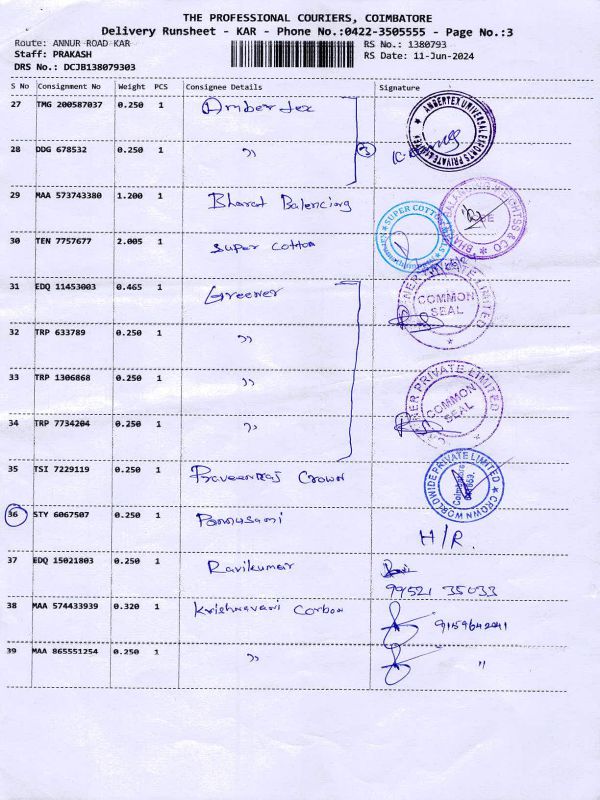 THE PROFESSIONAL COURIERS, COIMBATORE
Delivery Runsheet - KAR - Phone No.:0422-3505555 - Page No.:3
Route: ANNUR ROAD KAR
Staff: PRAKASH
DRS No.: DCJB138079303
RS No.: 1380793
RS Date: 11-Jun-2024
S No Consignment No Weight PCS Consignee Details Signature
27 TMG 200587037 0.250 1 Ambertex
AMBERTEX UNIVERSAL EXPORTS PRIVATE LIMITED
28 DDG 678532 0.250 1 "
29 MAA 573743380 1.200 1 Bharat Balencing
BHARAT BALANCING WEIGHTSS & CO
30 TEN 7757677 2.005 1 Super Cotton
SUPER COTTON MILLS
31 EDQ 11453003 0.465 1 Greener
PRIVATE LIMITED
COMMON SEAL
32 TRP 633789 0.250 1 "
33 TRP 1306868 0.250 1 "
34 TRP 7734204 0.250 1 "
NER PRIVATE LIMITED
COMMON SEAL
35 TSI 7229119 0.250 1 Praveenraj Crown
CROWN WORLDWIDE PRIVATE LIMITED
36 STY 6067507 0.250 1 Ponnusami H/R.
37 EDQ 15021803 0.250 1 Ravikumar
99521 35033
38 MAA 574433939 0.320 1 Krishnaveni Corbon 9159642041
39 MAA 865551254 0.250 1 " "